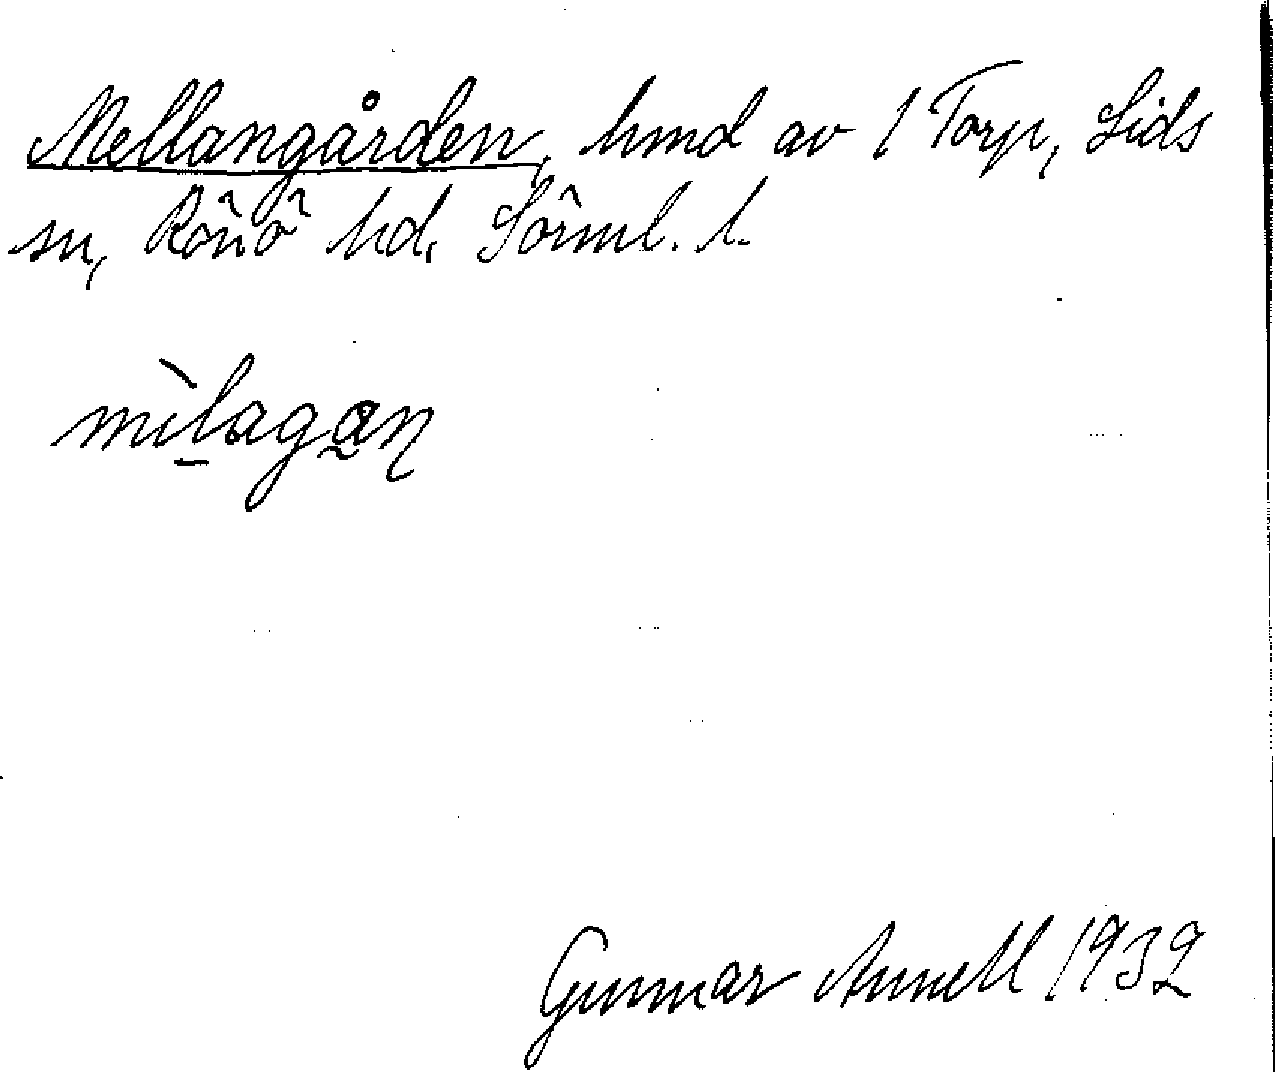 Mellangården, hmd av 1 Torp, Lids
sn, Rönö hd, Sörml. l.
mìlagan
Gunnar Annell 1932